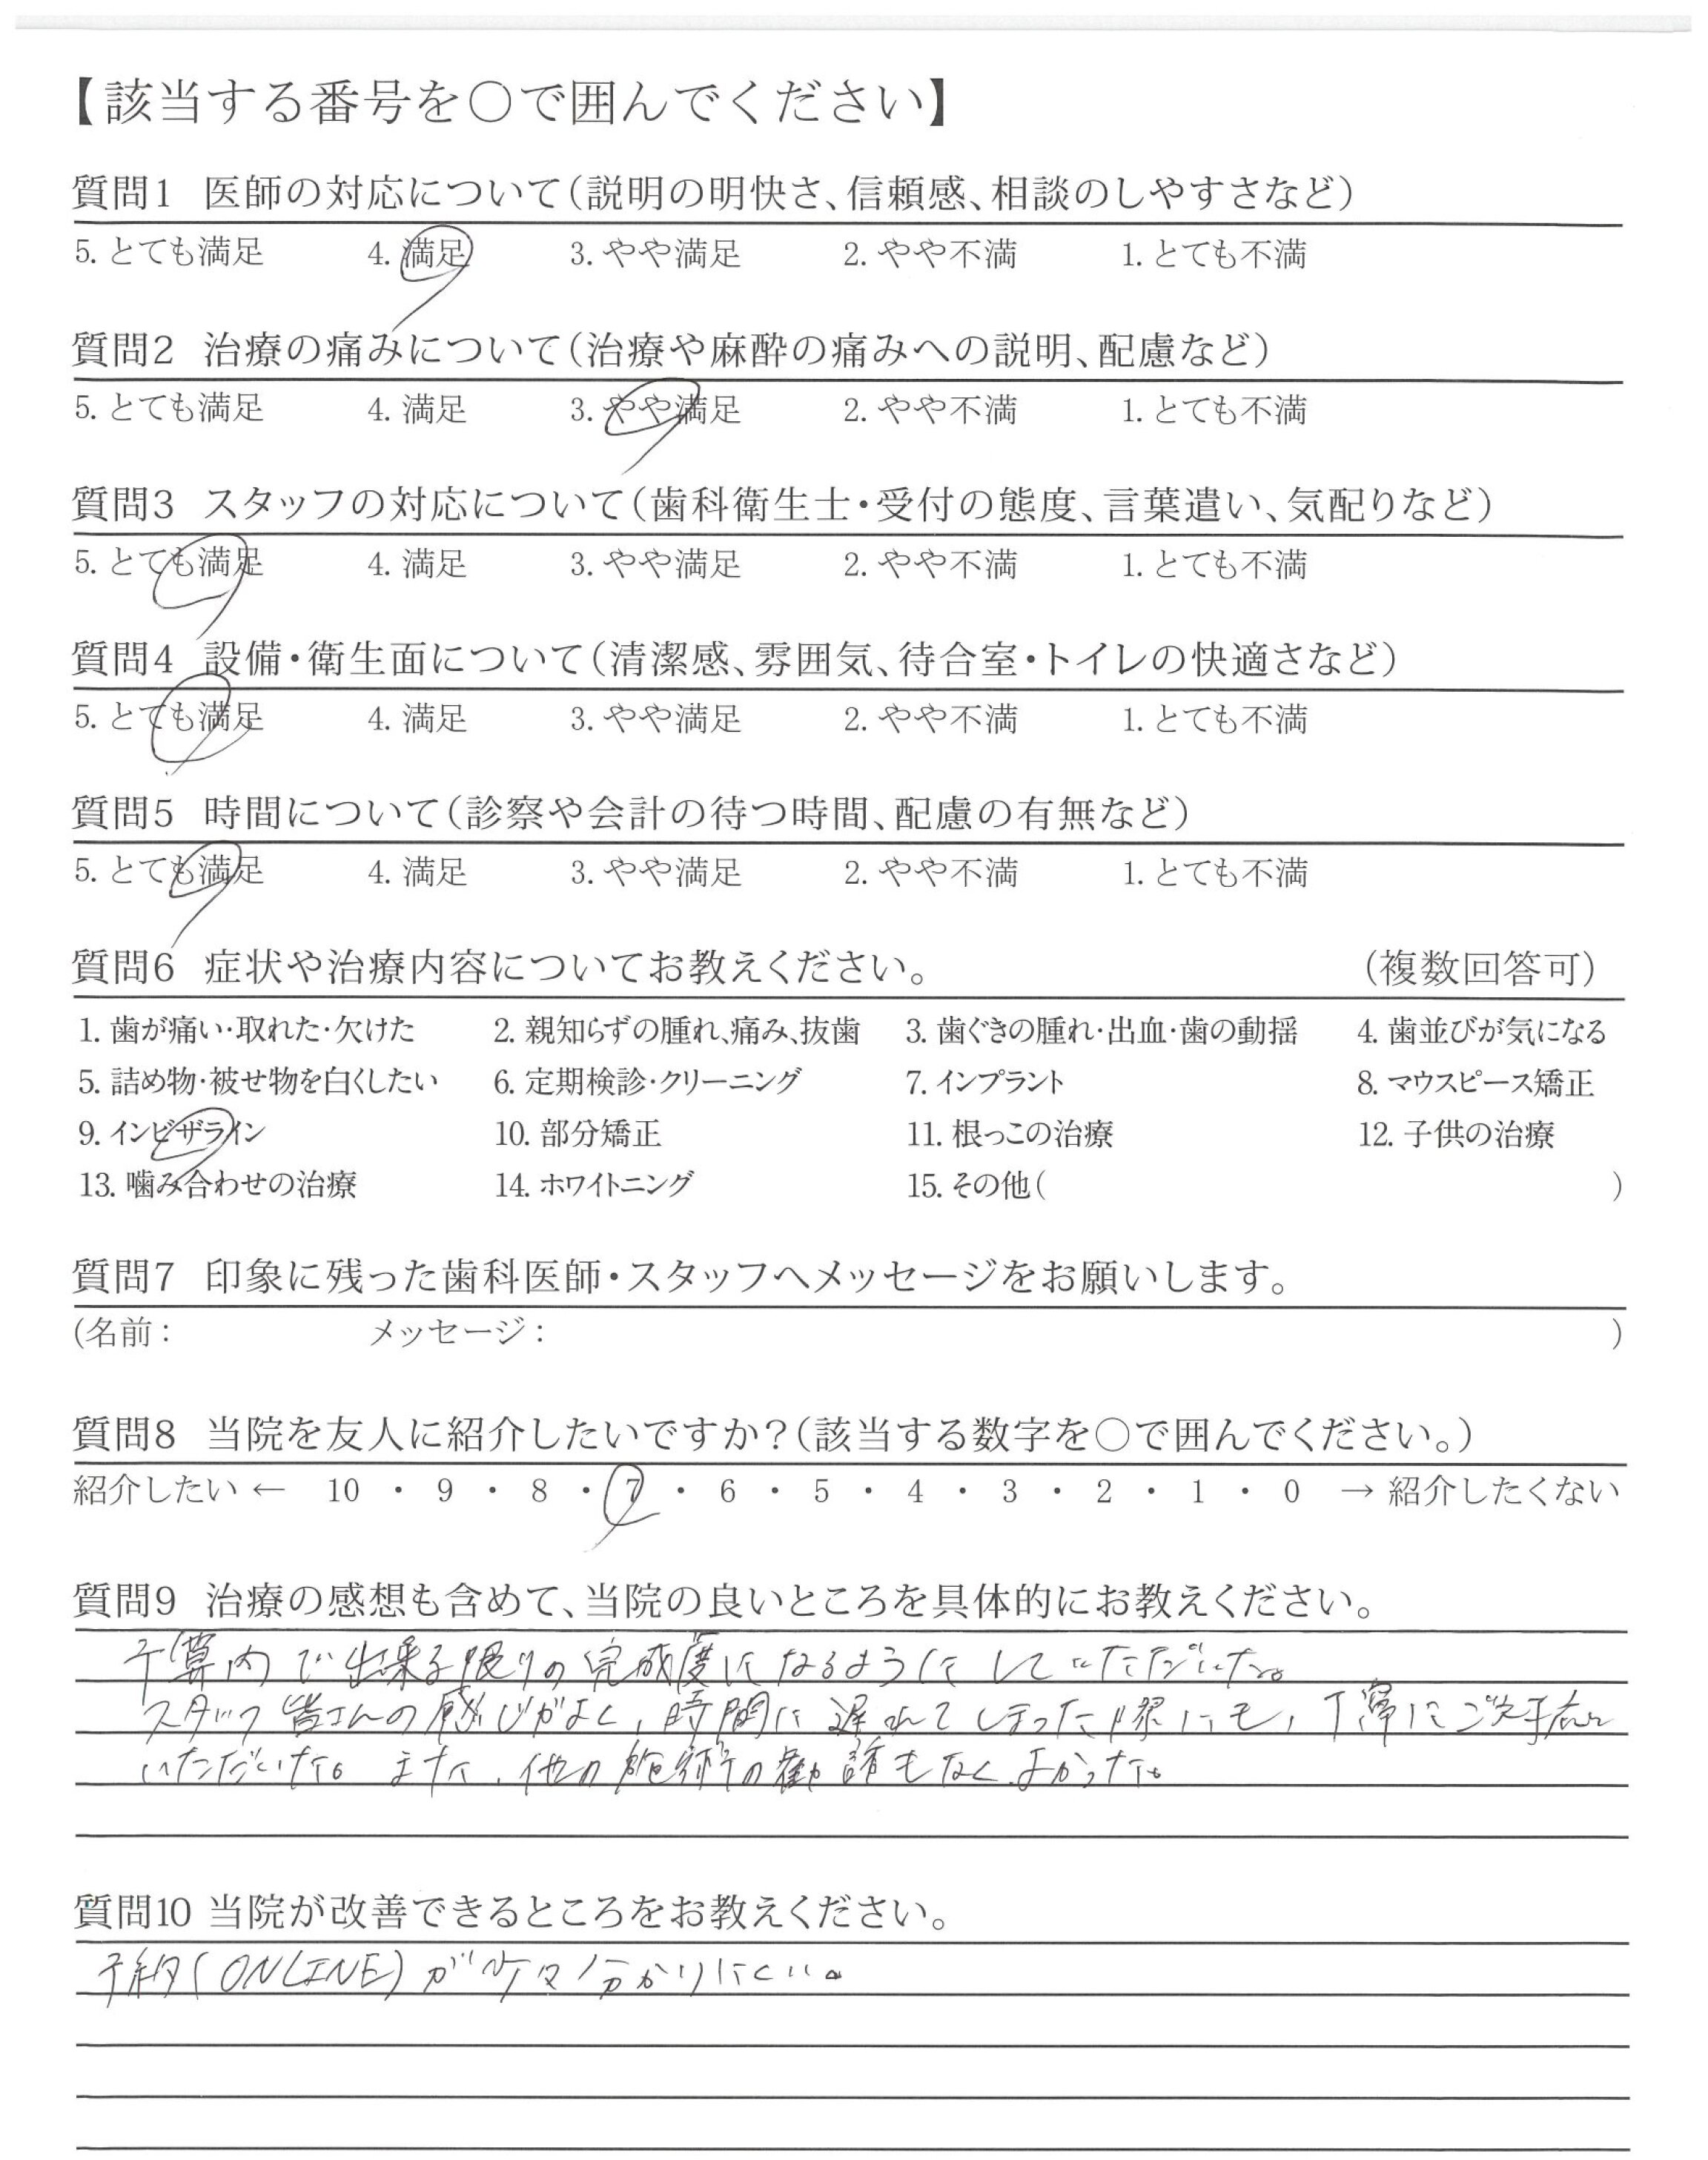 【該当する番号を○で囲んでください】
質問1 医師の対応について(説明の明快さ、信頼感、相談のしやすさなど)
5. とても満足 4. 満足 3. やや満足 2. やや不満 1. とても不満
質問2 治療の痛みについて(治療や麻酔の痛みへの説明、配慮など)
5. とても満足 4. 満足 3. やや満足 2. やや不満 1. とても不満
質問3 スタッフの対応について(歯科衛生士・受付の態度、言葉遣い、気配りなど)
5. とても満足 4. 満足 3. やや満足 2. やや不満 1. とても不満
質問4 設備・衛生面について(清潔感、雰囲気、待合室・トイレの快適さなど)
5. とても満足 4. 満足 3. やや満足 2. やや不満 1. とても不満
質問5 時間について(診察や会計の待つ時間、配慮の有無など)
5. とても満足 4. 満足 3. やや満足 2. やや不満 1. とても不満
質問6 症状や治療内容についてお教えください。 (複数回答可)
1. 歯が痛い・取れた・欠けた 2. 親知らずの腫れ、痛み、抜歯 3. 歯ぐきの腫れ・出血・歯の動揺 4. 歯並びが気になる
5. 詰め物・被せ物を白くしたい 6. 定期検診・クリーニング 7. インプラント 8. マウスピース矯正
9. インビザライン 10. 部分矯正 11. 根っこの治療 12. 子供の治療
13. 噛み合わせの治療 14. ホワイトニング 15. その他( )
質問7 印象に残った歯科医師・スタッフへメッセージをお願いします。
(名前: メッセージ: )
質問8 当院を友人に紹介したいですか?(該当する数字を○で囲んでください。)
紹介したい ← 10 ・ 9 ・ 8 ・ 7 ・ 6 ・ 5 ・ 4 ・ 3 ・ 2 ・ 1 ・ 0 → 紹介したくない
質問9 治療の感想も含めて、当院の良いところを具体的にお教えください。
予算内で出来る限りの完成度になるようにしていただいた。
スタッフ皆さんの感じがよく、時間に遅れてしまった際にも、丁寧にご対応
いただいた。また、他の施術の勧誘もなくよかった。
質問10 当院が改善できるところをお教えください。
予約(ONLINE)が 分かりにくい。